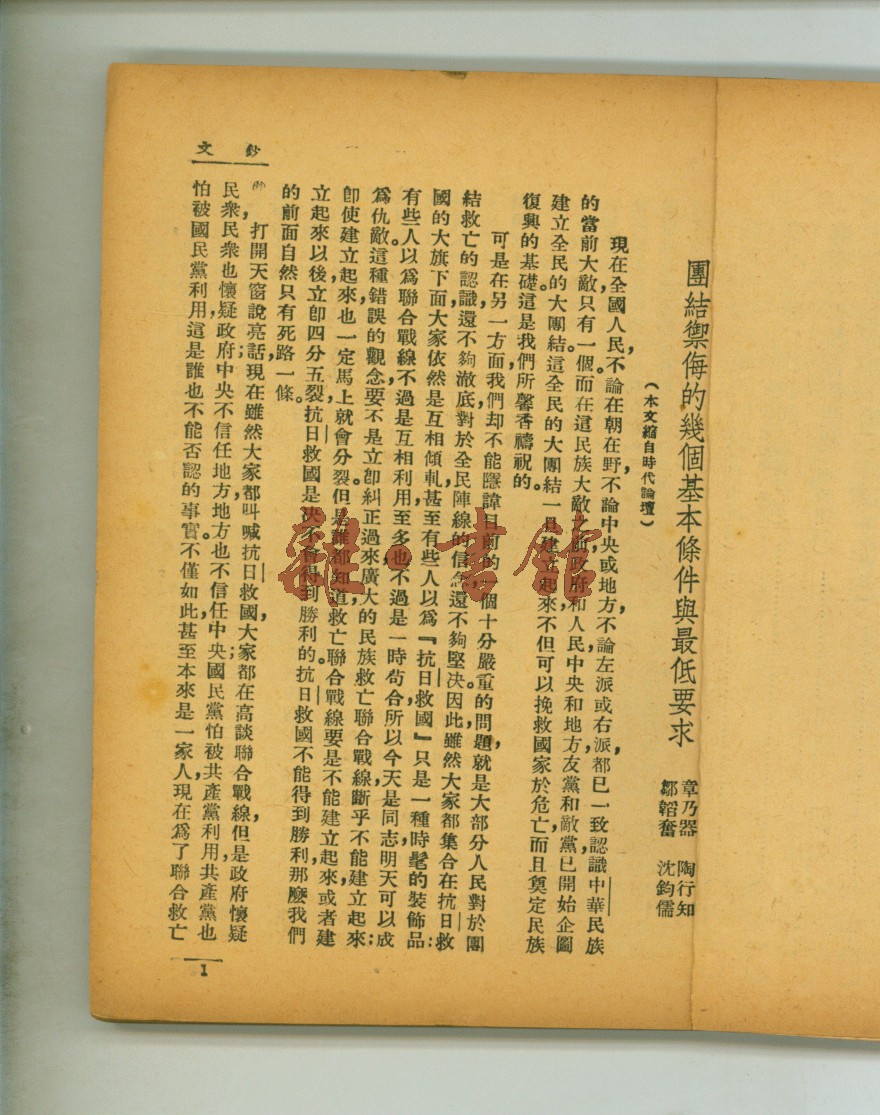 團結禦侮的幾個基本條件與最低要求
章乃器　陶行知
鄒韜奮　沈鈞儒
（本文縮自時代論壇）
現在全國人民，不論在朝在野，不論中央或地方，不論左派或右派，都已一致認識中華民族
的當前大敵，只有一個。而在這民族大敵之前，政府和人民，中央和地方，友黨和敵黨，已開始企圖
建立全民的大團結。這全民的大團結一旦建立起來，不但可以挽救國家於危亡，而且奠定民族
復興的基礎。這是我們所馨香禱祝的。
可是在另一方面，我們却不能隱諱目前的一個十分嚴重的問題，就是大部分人民對於團
結救亡的認識，還不夠澈底，對於全民陣線的信念，還不夠堅决。因此，雖然大家都集合在抗日救
國的大旗下面，大家依然是互相傾軋，甚至有些人以爲『抗日救國』只是一種時髦的裝飾品；
有些人以爲聯合戰線不過是互相利用，至多也不過是一時苟合，所以今天是同志，明天可以成
爲仇敵。這種錯誤的觀念，要不是立卽糾正過來，廣大的民族救亡聯合戰線，斷乎不能建立起來；
卽使建立起來，也一定馬上就會分裂。但是誰都知道，救亡聯合戰線，要是不能建立起來，或者建
立起來以後，立卽四分五裂，抗日救國是决不會得到勝利的。抗日救國不能得到勝利，那麼我們
的前面自然只有死路一條。
打開天窗說亮話，現在雖然大家都叫喊抗日救國，大家都在高談聯合戰線，但是政府懷疑
民衆，民衆也懷疑政府；中央不信任地方，地方也不信任中央；國民黨怕被共產黨利用，共產黨也
怕被國民黨利用，這是誰也不能否認的事實。不僅如此，甚至本來是一家人，現在爲了聯合救亡
文鈔
1
雜·書館